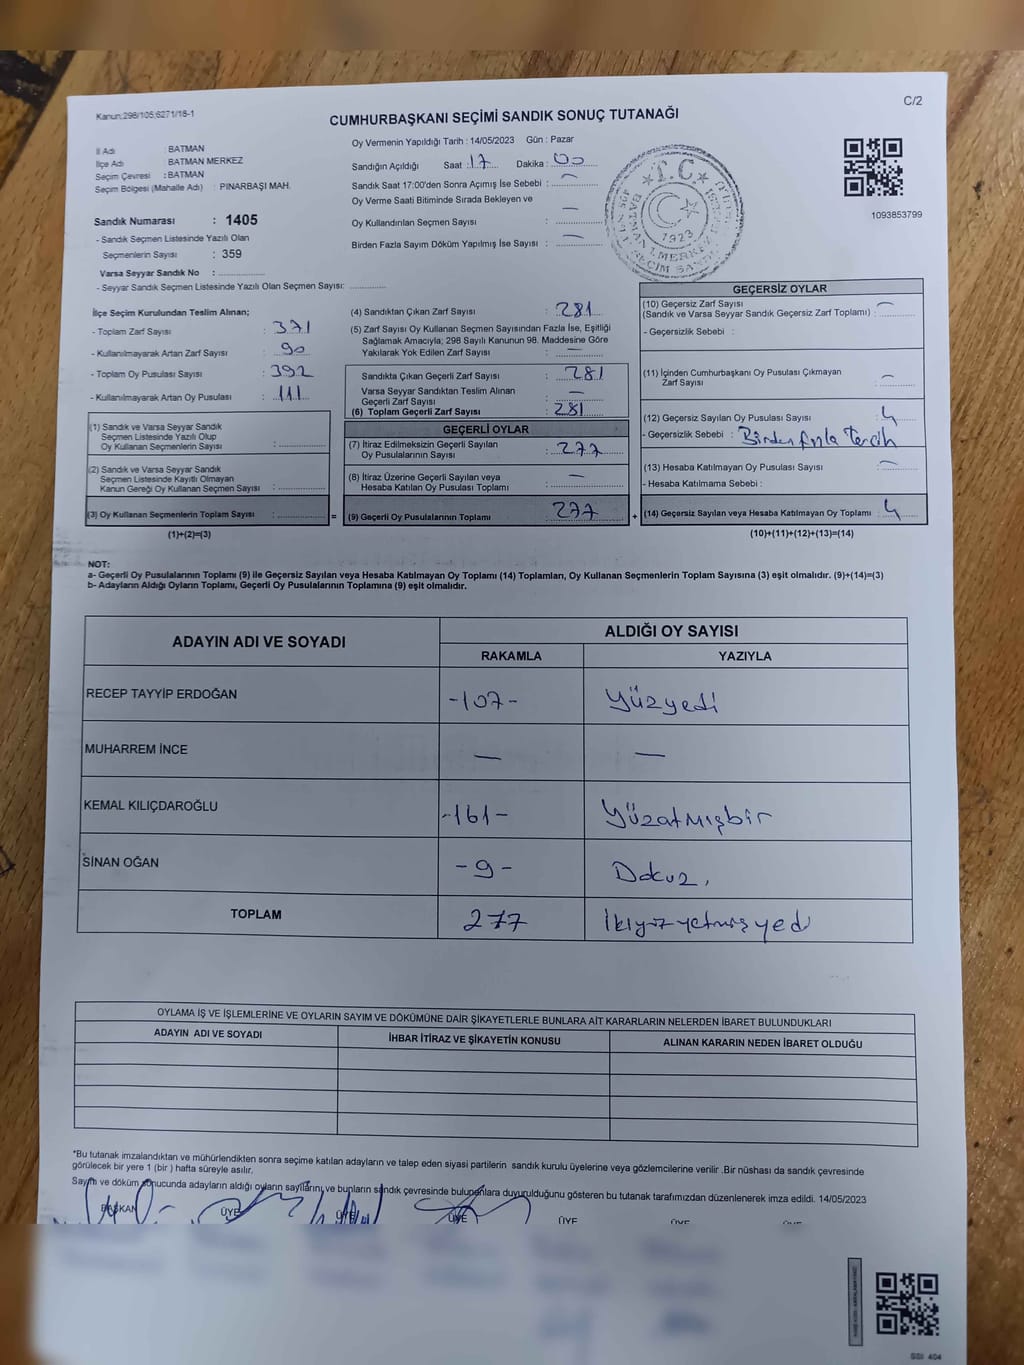 Kanun:298/105;6271/18-1
C/2
CUMHURBAŞKANI SEÇİMİ SANDIK SONUÇ TUTANAĞI
İl Adı : BATMAN
İlçe Adı : BATMAN MERKEZ
Seçim Çevresi : BATMAN
Seçim Bölgesi (Mahalle Adı) : PINARBAŞI MAH.
Sandık Numarası : 1405
- Sandık Seçmen Listesinde Yazılı Olan
Seçmenlerin Sayısı : 359
Varsa Seyyar Sandık No :
- Seyyar Sandık Seçmen Listesinde Yazılı Olan Seçmen Sayısı:
Oy Vermenin Yapıldığı Tarih : 14/05/2023 Gün : Pazar
Sandığın Açıldığı Saat : 17 Dakika : 00
Sandık Saat 17:00'den Sonra Açımış İse Sebebi : —
Oy Verme Saati Bitiminde Sırada Bekleyen ve
Oy Kullandırılan Seçmen Sayısı : —
Birden Fazla Sayım Döküm Yapılmış İse Sayısı : —
T.C.
1923
1093853799
İlçe Seçim Kurulundan Teslim Alınan;
- Toplam Zarf Sayısı : 371
- Kullanılmayarak Artan Zarf Sayısı : 90
- Toplam Oy Pusulası Sayısı : 392
- Kullanılmayarak Artan Oy Pusulası : 111
(1) Sandık ve Varsa Seyyar Sandık
Seçmen Listesinde Yazılı Olup
Oy Kullanan Seçmenlerin Sayısı :
(2) Sandık ve Varsa Seyyar Sandık
Seçmen Listesinde Kayıtlı Olmayan
Kanun Gereği Oy Kullanan Seçmen Sayısı :
(3) Oy Kullanan Seçmenlerin Toplam Sayısı :
(1)+(2)=(3)
=
(4) Sandıktan Çıkan Zarf Sayısı : 281
(5) Zarf Sayısı Oy Kullanan Seçmen Sayısından Fazla İse, Eşitliği
Sağlamak Amacıyla; 298 Sayılı Kanunun 98. Maddesine Göre
Yakılarak Yok Edilen Zarf Sayısı : —
Sandıkta Çıkan Geçerli Zarf Sayısı : 281
Varsa Seyyar Sandıktan Teslim Alınan
Geçerli Zarf Sayısı : —
(6) Toplam Geçerli Zarf Sayısı : 281
GEÇERLİ OYLAR
(7) İtiraz Edilmeksizin Geçerli Sayılan
Oy Pusulalarının Sayısı : 277
(8) İtiraz Üzerine Geçerli Sayılan veya
Hesaba Katılan Oy Pusulası Toplamı : —
(9) Geçerli Oy Pusulalarının Toplamı : 277
+
GEÇERSİZ OYLAR
(10) Geçersiz Zarf Sayısı
(Sandık ve Varsa Seyyar Sandık Geçersiz Zarf Toplamı) : —
- Geçersizlik Sebebi :
(11) İçinden Cumhurbaşkanı Oy Pusulası Çıkmayan
Zarf Sayısı : —
(12) Geçersiz Sayılan Oy Pusulası Sayısı : 4
- Geçersizlik Sebebi : Birden fazla tercih
(13) Hesaba Katılmayan Oy Pusulası Sayısı : —
- Hesaba Katılmama Sebebi :
(14) Geçersiz Sayılan veya Hesaba Katılmayan Oy Toplamı : 4
(10)+(11)+(12)+(13)=(14)
NOT:
a- Geçerli Oy Pusulalarının Toplamı (9) ile Geçersiz Sayılan veya Hesaba Katılmayan Oy Toplamı (14) Toplamları, Oy Kullanan Seçmenlerin Toplam Sayısına (3) eşit olmalıdır. (9)+(14)=(3)
b- Adayların Aldığı Oyların Toplamı, Geçerli Oy Pusulalarının Toplamına (9) eşit olmalıdır.
ADAYIN ADI VE SOYADI ALDIĞI OY SAYISI
RAKAMLA YAZIYLA
RECEP TAYYİP ERDOĞAN -107- Yüzyedi
MUHARREM İNCE — —
KEMAL KILIÇDAROĞLU -161- Yüzatmışbir
SİNAN OĞAN -9- Dokuz,
TOPLAM 277 İkiyüzyetmişyedi
OYLAMA İŞ VE İŞLEMLERİNE VE OYLARIN SAYIM VE DÖKÜMÜNE DAİR ŞİKAYETLERLE BUNLARA AİT KARARLARIN NELERDEN İBARET BULUNDUKLARI
ADAYIN ADI VE SOYADI İHBAR İTİRAZ VE ŞİKAYETİN KONUSU ALINAN KARARIN NEDEN İBARET OLDUĞU
*Bu tutanak imzalandıktan ve mühürlendikten sonra seçime katılan adayların ve talep eden siyasi partilerin sandık kurulu üyelerine veya gözlemcilerine verilir .Bir nüshası da sandık çevresinde
görülecek bir yere 1 (bir ) hafta süreyle asılır.
Sayım ve döküm sonucunda adayların aldığı oyların sayılarını ve bunların sandık çevresinde bulunanlara duyurulduğunu gösteren bu tutanak tarafımızdan düzenlenerek imza edildi. 14/05/2023
BAŞKAN ÜYE ÜYE ÜYE ÜYE ÜYE ÜYE